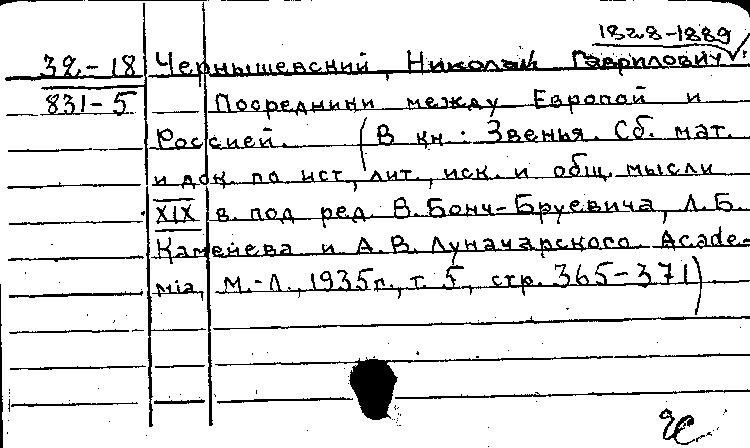 1828-1889
38-18 Чернышевский, Николай Гаврилович
831-5 Посредники между Европой и
Россией. (В кн.: Звенья. Сб. мат.
и док. по ист., лит., иск. и общ. мысли
XIX в. под ред. В. Бонч-Бруевича, Л.Б.
Каменева и А.В. Луначарского. Acade-
mia, М.-Л., 1935г., т. 5, стр. 365-371)